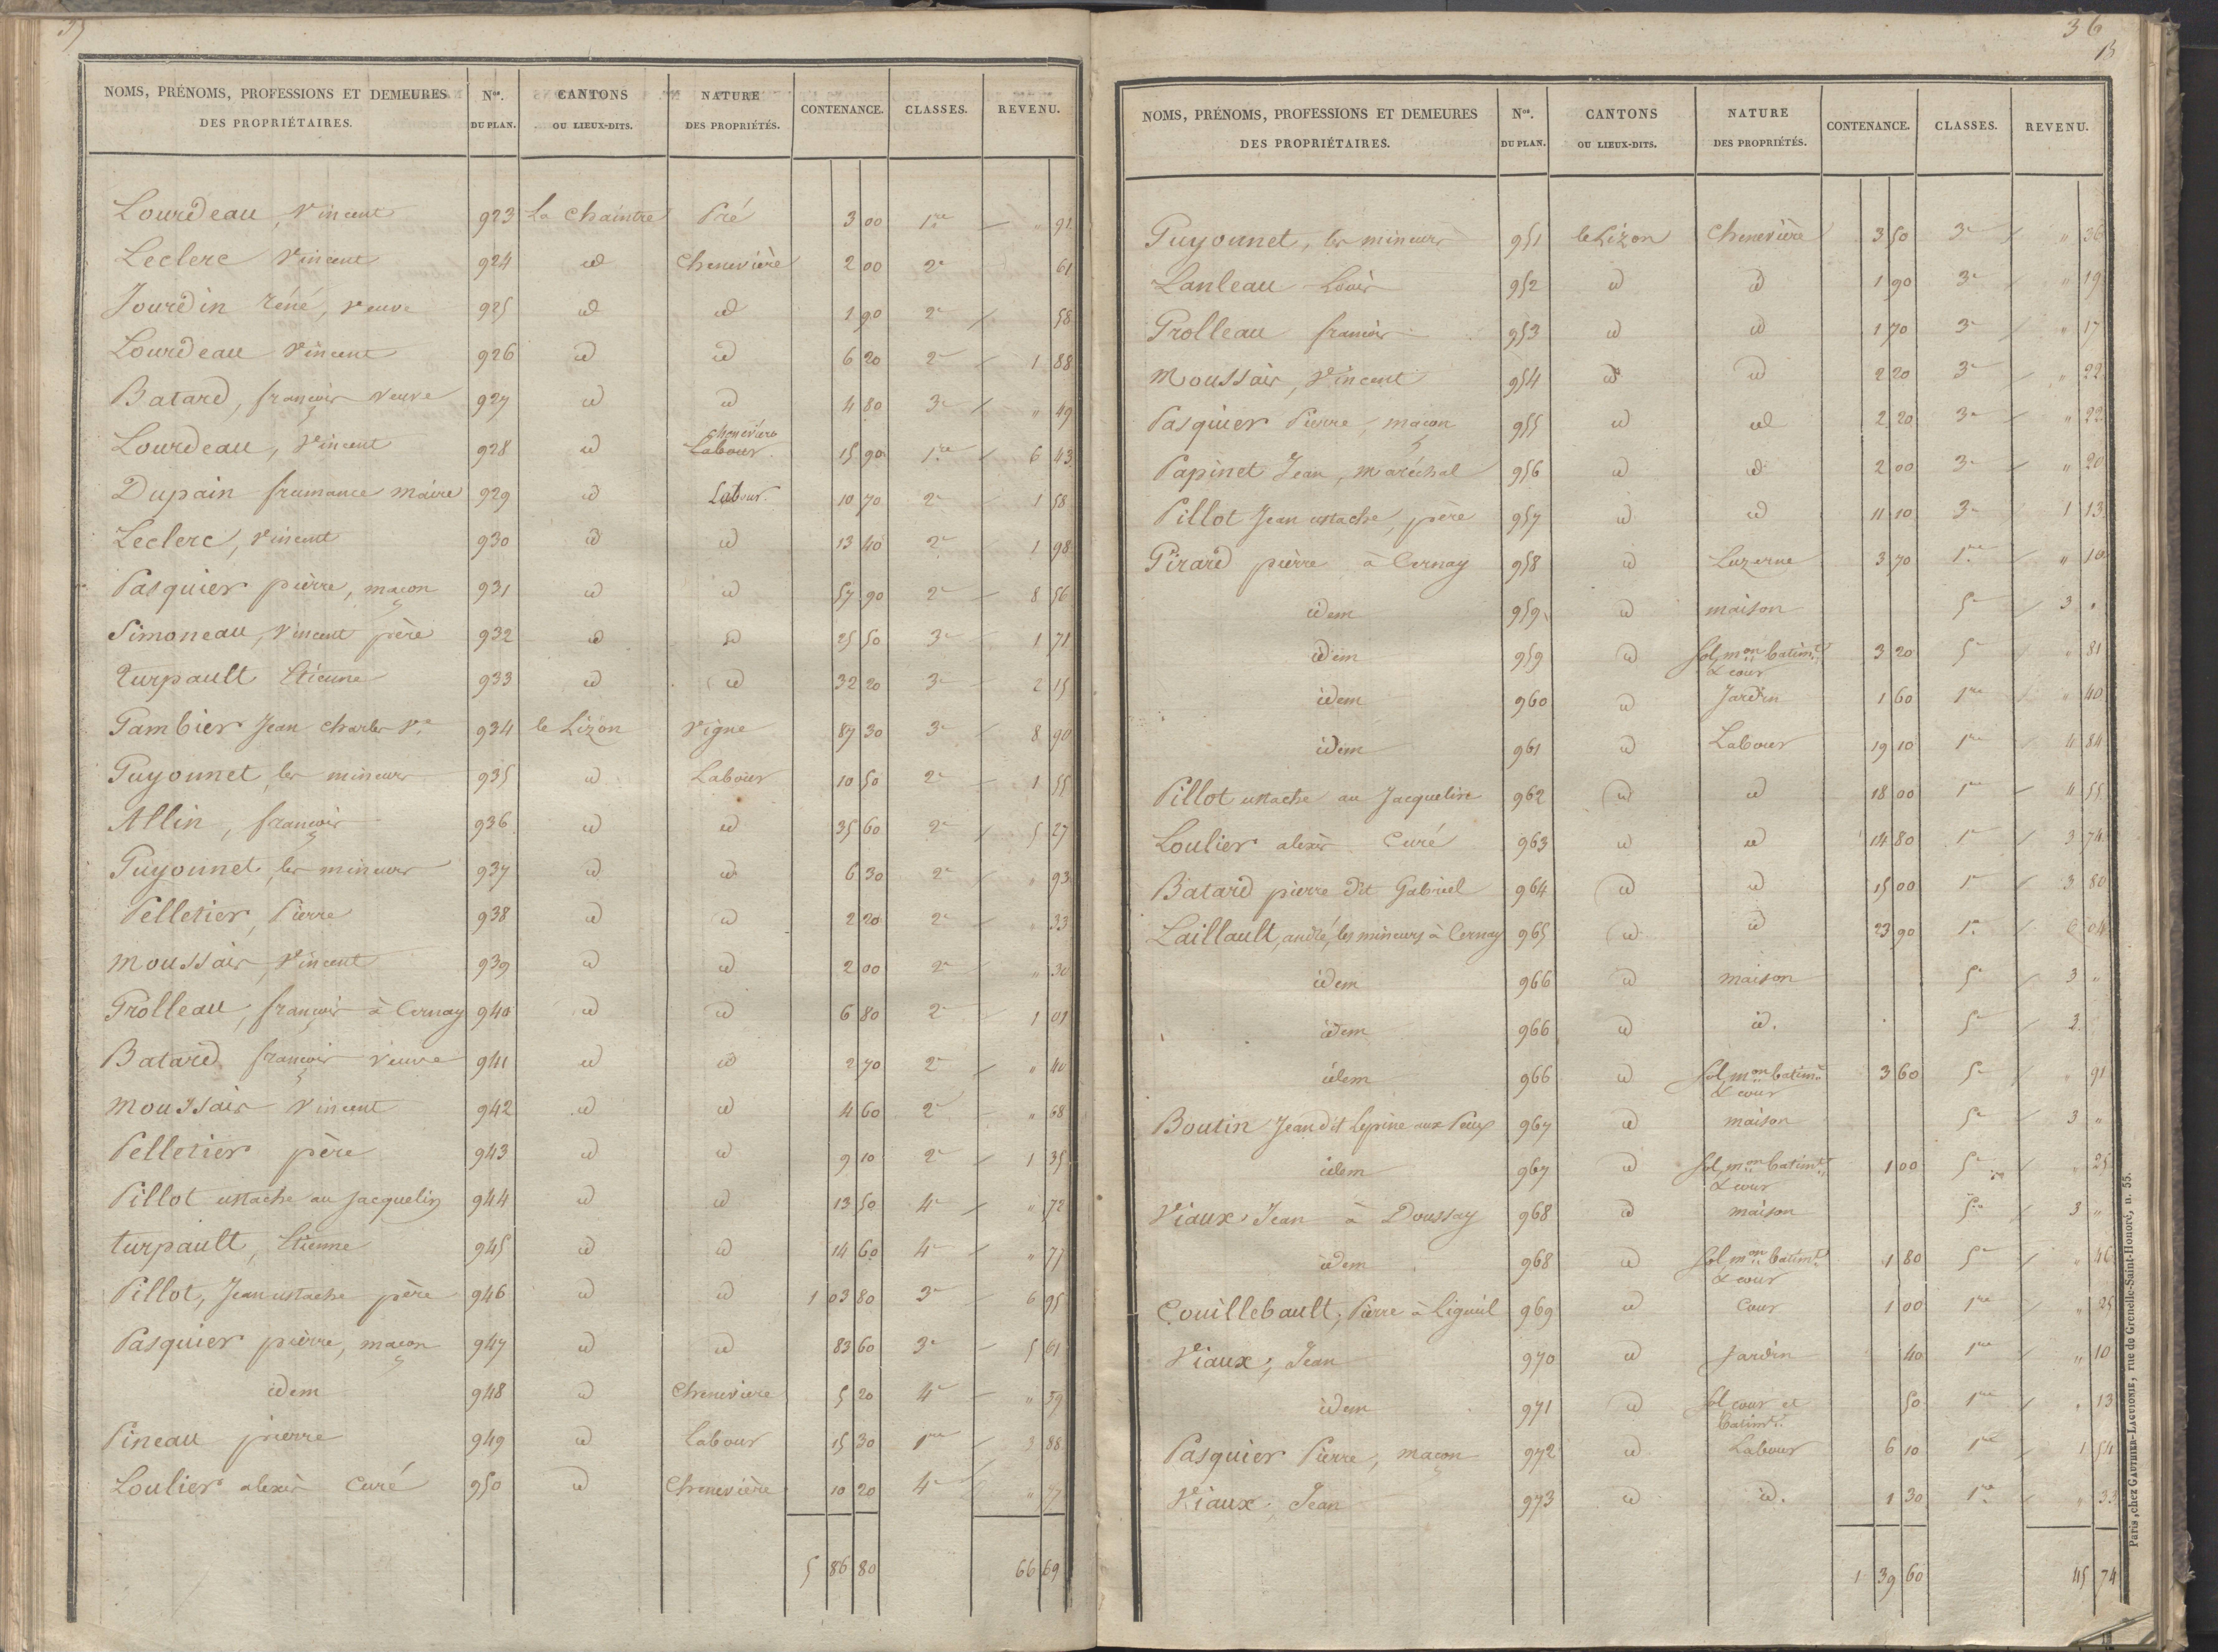 35
NOMS, PRÉNOMS, PROFESSIONS ET DEMEURES DES PROPRIÉTAIRES. Nos. DU PLAN. CANTONS OU LIEUX-DITS. NATURE DES PROPRIÉTÉS. CONTENANCE. CLASSES. REVENU.
Lourdeau, Vincent 923 La Chaintre Pré 3 00 1re " 91
Leclerc Vincent 924 id Chenevière 2 00 2e 61
Jourdin réné, veuve 925 id id 1 90 2e 58
Lourdeau Vincent 926 id id 6 20 2e 1 88
Batard, françois veuve 927 id id 4 80 3e " 49
Lourdeau, Vincent 928 id chenevière Labour 15 90 1re 6 43
Dupain frumance maire 929 id Labour. 10 70 2e 1 58
Leclerc, Vincent 930 id id 13 40 2e 1 98
Pasquier pièrre, maçon 931 id id 57 90 2e 8 56
Simoneau, Vincent père 932 id id 25 50 3e 1 71
Turpault Etienne 933 id id 32 20 3e 2 15
Gambier Jean Charles Ve 934 le Lizon Vigne 87 30 3e 8 90
Guyonnet, les mineurs 935 id Labour 10 50 2e 1 55
Allin, françois 936 id id 35 60 2e 5 27
Guyonnet, les mineurs 937 id id 6 30 2e " 93
Pelletier, Pierre 938 id id 2 20 2e " 33
Moussais, Vincent 939 id id 2 00 2e " 30
Grolleau, françois à Cernay 940 id id 6 80 2e 1 01
Batard françois veuve 941 id id 2 70 2e " 40
Moussais Vincent 942 id id 4 60 2e " 68
Pelletier père 943 id id 9 10 2e 1 35
Pillot ustache au jacquelin 944 id id 13 50 4e " 72
turpault, Etienne 945 id id 14 60 4e " 77
Pillot, Jean ustache père 946 id id 1 03 80 3e 6 95
Pasquier pièrre, maçon 947 id id 83 60 3e 5 61
idem 948 id Chenevière 5 20 4e " 39
Pineau pierre 949 id Labour 15 30 1re 3 88
Loulier alexis Curé 950 id Chenevière 10 20 4e " 77
5 86 80 66 69
36
15
NOMS, PRÉNOMS, PROFESSIONS ET DEMEURES DES PROPRIÉTAIRES. Nos. DU PLAN. CANTONS OU LIEUX-DITS. NATURE DES PROPRIÉTÉS. CONTENANCE. CLASSES. REVENU.
Guyonnet, les mineurs 951 le Lizon Chenevière 3 50 3e " 36
Lanleau Louis 952 id id 1 90 3e " 19
Grolleau françois 953 id id 1 70 3e " 17
Moussais, Vincent 954 id id 2 20 3e " 22
Pasquier Pierre, maçon 955 id id 2 20 3e " 22
Papinet Jean, Maréchal 956 id id 2 00 3e " 20
Pillot Jean ustache, père 957 id id 11 10 3e 1 13
Girard pièrre à Cernay 958 id Luzerne 3 70 1re " 10
idem 959 id maison 5e 3 "
idem 959 id Sol, mon batimts & cour 3 20 5e " 81
idem 960 id Jardin 1 60 1re " 40
idem 961 id Labour 19 10 1re 4 84
Pillot ustache au Jacquelin 962 id id 18 00 1re 4 55
Loulier alexis Curé 963 id id 14 80 1re 3 74
Batard pierre dit Gabriel 964 id id 15 00 1re 3 80
Laillault, andré, les mineurs à Cernay 965 id id 23 90 1re 6 04
idem 966 id maison 5e 3 "
idem 966 id id. 5e 3
idem 966 id Sol, mon batimts & cour 3 60 5e " 91
Boutin Jean dit Lepine aux Peux 967 id maison 5e 3 "
idem 967 id Sol, mon batimts & cour 1 00 5e " 25
Viaux, Jean à Doussay 968 id maison 5e 3 "
idem 968 id Sol, mon batimts & cour 1 80 5e " 46
Couillebault, Pierre à Ligueil 969 id Cour 1 00 1re " 25
Viaux, Jean 970 id Jardin 40 1re " 10
idem 971 id Sol cour et batimts. 50 1re " 13
Pasquier Pierre, maçon 972 id Labour 6 10 1re 1 54
Viaux, Jean 973 id id. 1 30 1re " 33
1 39 60 45 74
Paris, chez GAUTHIER-LAGUIONIE, rue de Grenelle-Saint-Honoré, n. 55.